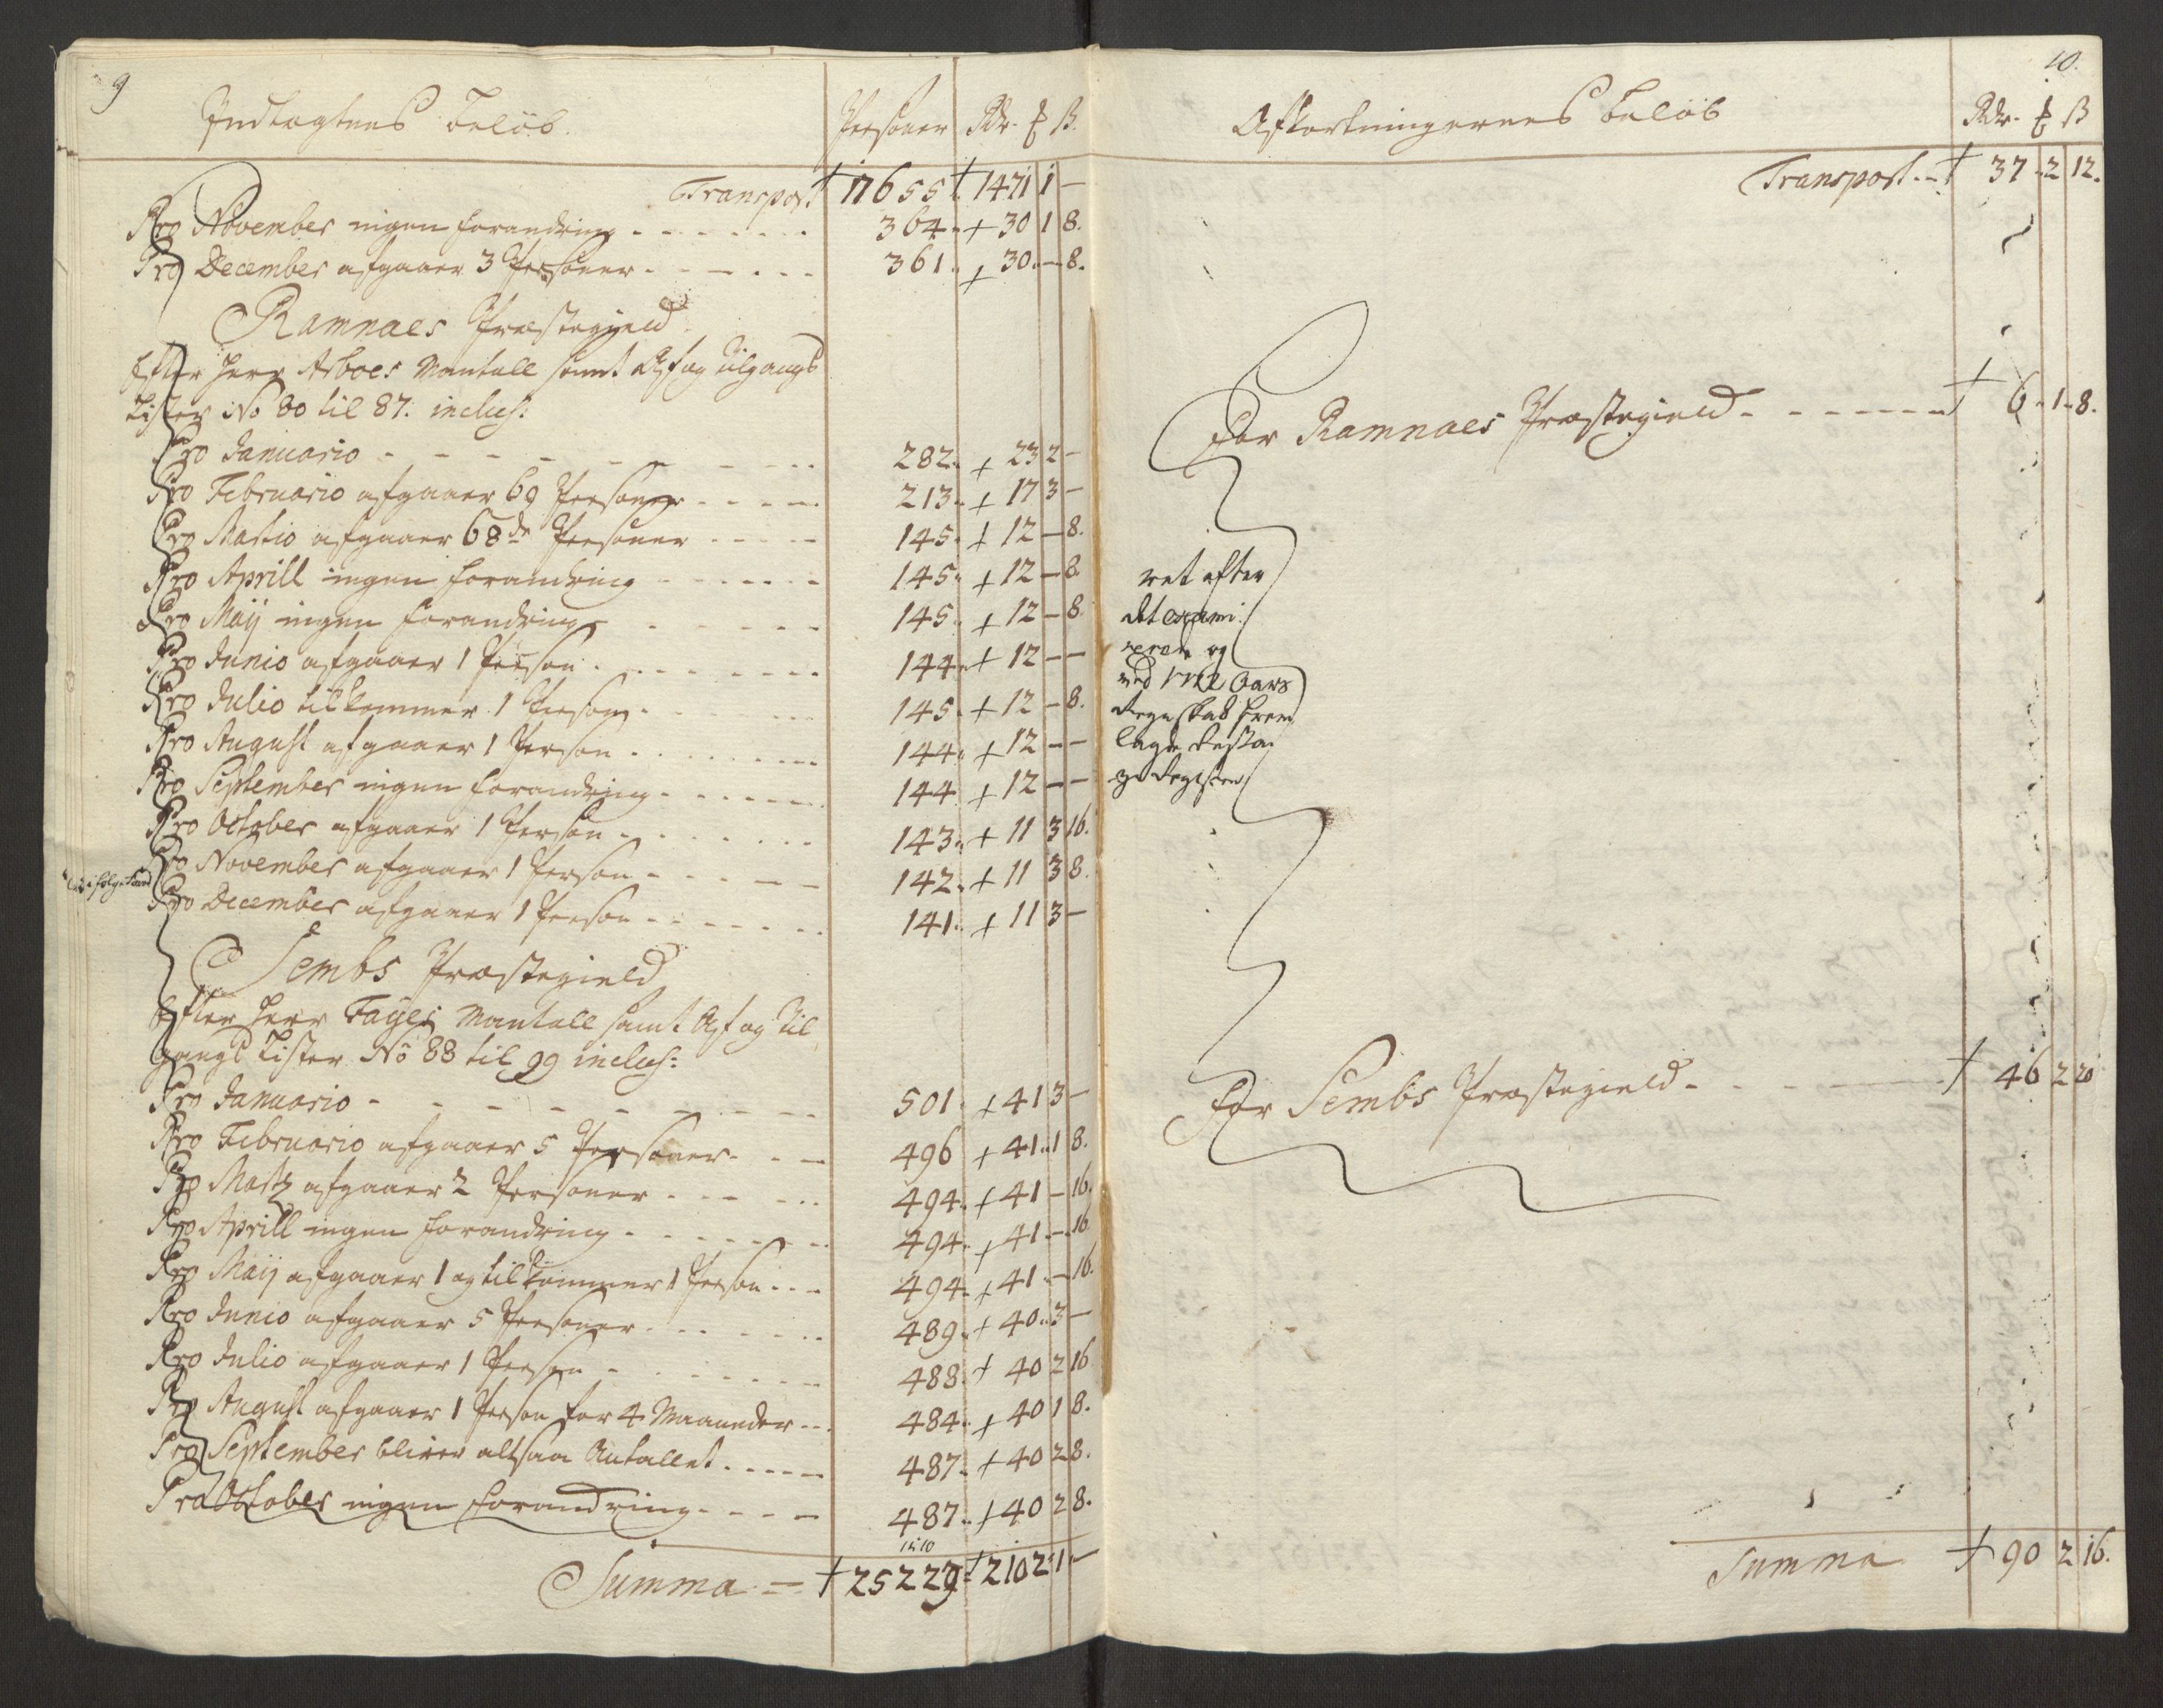 9
Indtægtens Beløb. Personer Rdr. ₰ ß.
Transport 17655 1471 1 —
Pro November ingen forandring - - - - - - 364 30 1 8.
Pro December afgaaer 3 Personer - - - - - - 361 30 — 8.
Ramnaes Præstegield
Efter Herr Asboes Mantall samt Af og Tilgangs
Lister No 80 til 87. inclus:
Pro Januario - - - - - - 282 23 2 —
Pro Februario afgaaer 69 Personer - - - - - 213 17 3 —
Pro Martio afgaaer 68de Personer - - - - - 145 12 — 8.
Pro Aprill ingen forandring - - - - - - 145 12 — 8.
Pro Maij ingen forandring - - - - - - 145 12 — 8
Pro Junio afgaaer 1 Person - - - - - - 144 12 — —
Pro Julio tilkommer 1 Person - - - - - 145 12 — 8.
Pro August afgaaer 1 Person - - - - - - 144 12 — —
Pro September ingen forandring - - - - - - 144 12 — —
Pro October afgaaer 1 Person - - - - - - 143 11 3 16.
Pro November afgaaer 1 Person - - - - - 142 11 3 8.
Pro December afgaaer 1 Person - - - - - - 141 11 3 —
Sembs Præstegield
Efter Herr Fayes Mantall samt Af og Til
gangs Lister No 88 til 99 inclus:
Pro Januario - - - - - - 501 41 3 —
Pro Februario afgaaer 5 Personer - - - 496 41 1 8.
Pro Marts afgaaer 2 Personer - - - - - 494 41 — 16.
Pro Aprill ingen forandring - - - - - - 494 41 — 16
Pro Maij afgaaer 1 og tilkommer 1 Person - - - 494 41 — 16.
Pro Junio afgaaer 5 Personer - - - - - 489 40 3 —
Pro Julio afgaaer 1 Person - - - - - - 488 40 2 16
Pro August afgaaer 1 Person for 4 Maaneder - - 484 40 1 8.
Pro September bliver altsaa Antallet - - - - - 487 40 2 8.
Pro October ingen forandring - - - - 487 40 2 8.
Summa 25229 2102 1 —
10.
Afkortningernes Beløb Rdr. ₰ ß
Transport 37 2 12.
For Ramnaes Præstegield - - - - - - 6 1 8.
ret efter
det exami
og
ved 1762 Aars
Regnskab frem
lagde
For Sembs Præstegield - - - - - 46 2 20
Summa 90 2 16.